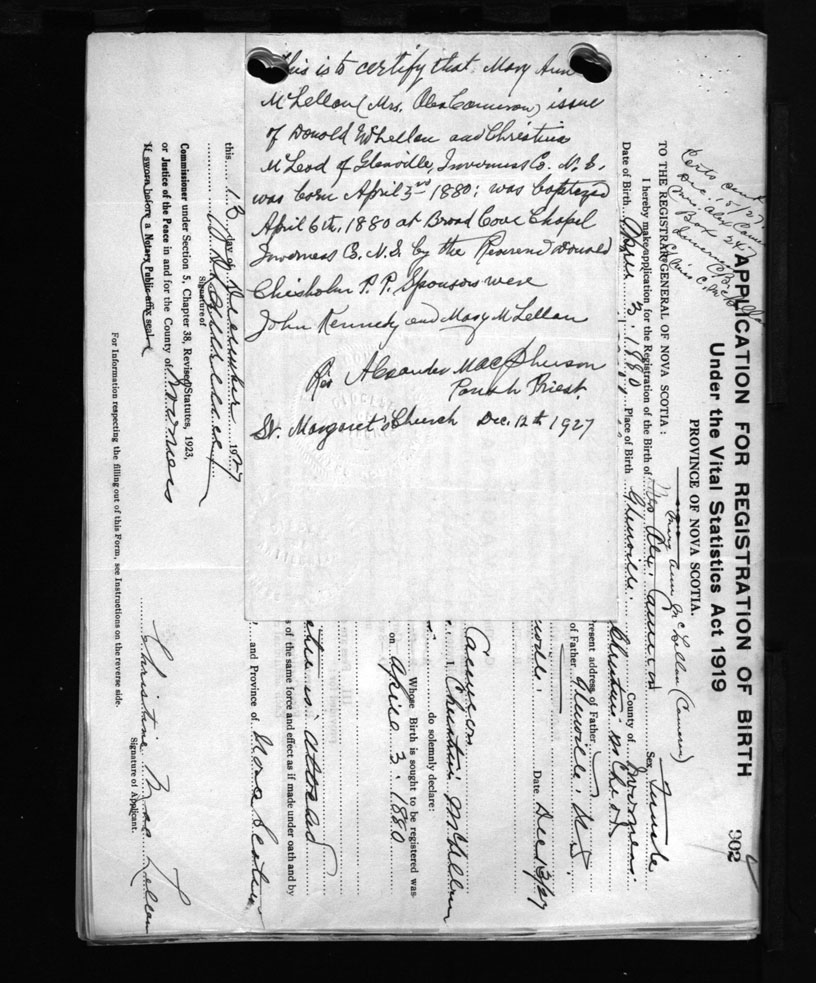 This is to certify that Mary Ann
McLellan (Mrs. Alex Cameron) issue
of Donald McLellan and Christina
McLeod of Glenville, Inverness Co. N.S.
was born April 3rd 1880; was baptized
April 6th, 1880 at Broad Cove Chapel
Inverness Co. N.S. by the Reverend Donald
Chisholm P.P. Sponsors were
John Kennedy and Mary McLellan
Rev Alexander MacPherson
Parish Priest.
St. Margaret's Church Dec. 12th 1927
902
APPLICATION FOR REGISTRATION OF BIRTH
Under the Vital Statistics Act 1919
PROVINCE OF NOVA SCOTIA.
Mary Ann McLellan (Cameron)
TO THE REGISTRAR GENERAL OF NOVA SCOTIA:
I hereby make application for the Registration of the Birth of Mrs Alex. Cameron Sex Female
Date of Birth April 3. 1880 Place of Birth Glenville. County of Inverness.
Christina McLeod
resent address of Father
of Father Glenville. N.S.
Date Dec 13/27
Cameron
I, Christina McLellan
do solemnly declare:
Whose Birth is sought to be registered was
on April 3. 1880
attached
s of the same force and effect as if made under oath and by
and Province of Nova Scotia
this 13 day of December 1927
Signature of
Commissioner under Section 5, Chapter 38, Revised Statutes, 1923,
or Justice of the Peace in and for the County of Inverness
If sworn before a Notary Public affix seal
Christine MacLellan
Signature of Applicant.
For Information respecting the filling out of this Form, see Instructions on the reverse side.